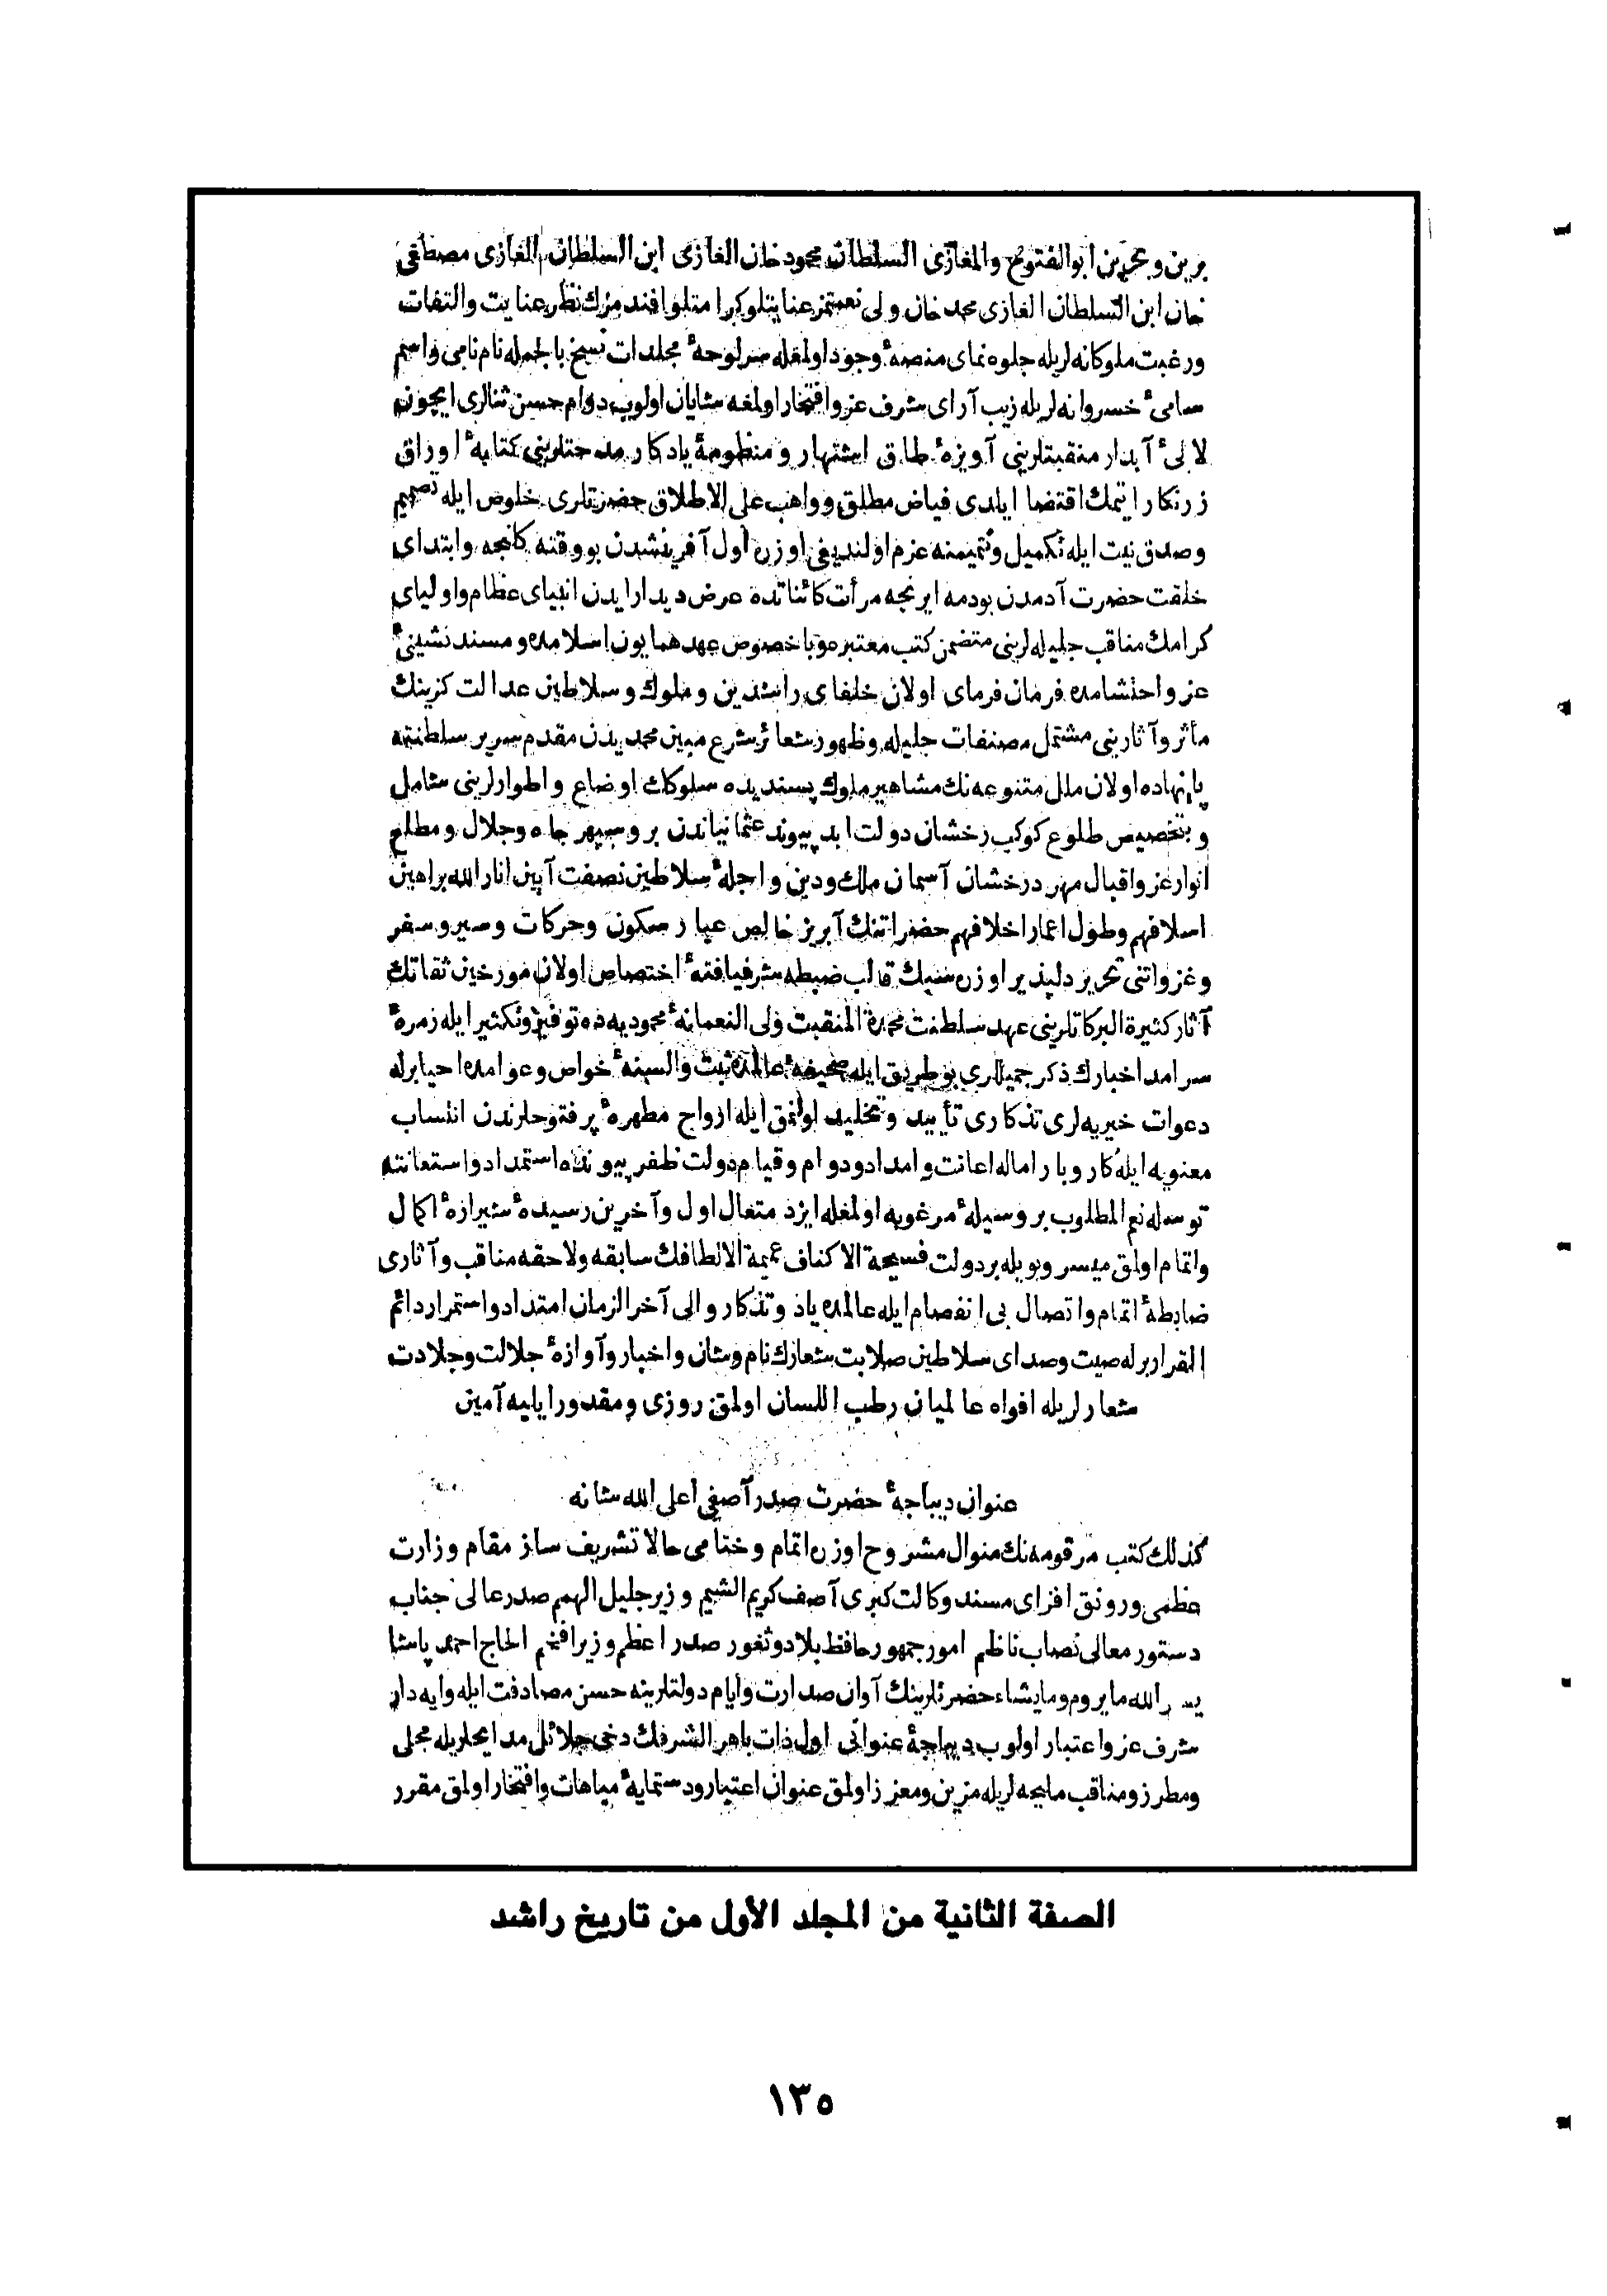 برين وبحرين ابوالفتوح والمغازى السلطان محمود خان الغازى ابن السلطان الغازى مصطفى
خان ابن السلطان الغازى محمد خان ولى نعمتمز عنايتلو كرامتلو افندمزك نظر عنايت والتفات
ورغبت ملوكانه لريله جلوه نماى منصۀ وجود اولمغله سرلوحۀ مجلدات نسخ بالجمله نام نامى واسم
سامئ خسروانه لريله زيب آراى شرف عز وافتخار اولمغه شايان اولوب دوام حسن ثنالرى ايچون
لالئ آبدار منقبتلرينى آويزۀ طاق اشتهار ومنظومۀ يادكار مدحتلرينى كتابۀ اوراق
زرنكار ايتمك اقتضا ايلدى فياض مطلق وواهب على الاطلاق حضرتلرى خلوص ايله تصميم
وصدق نيت ايله تكميل وتتميمنه عزم اولنديغى اوزره اول آفرينشدن بو وقته كلنجه وابتداى
خلقت حضرت آدمدن بودمه ايرنجه مرأت كائناتده عرض ديدار ايدن انبياى عظام واولياى
كرامك مناقب جليله لرينى متضمن كتب معتبره وباخصوص عهد همايون اسلامده ومسند نشينئ
عز واحتشامده فرمان فرماى اولان خلفاى راشدين وملوك وسلاطين عدالت كزينك
مآثر وآثارينى مشتمل مصنفات جليله وظهور شعائر شرع مبين محمديدن مقدم سرير سلطنته
پانهاده اولان ملل متنوعه نك مشاهير ملوك پسنديده سلوكك اوضاع واطوارلرينى شامل
وبتخصيص طلوع كوكب رخشان دولت ابد پيوند عثمانياندن بروسپهر جاه وجلال ومطلع
انوار عز واقبال مهر درخشان آسمان ملك ودين واجلۀ سلاطين نصفت آيين انار الله براهين
اسلافهم وطول اعمار اخلافهم حضراتنك آبريز خالص عيار سكون وحركات وسير وسفر
وغزواتنى تحرير دلپذير اوزره سبك قالب ضبطه شرفيافتۀ اختصاص اولان مورخين ثقاتك
آثار كثيرة البركاتلرينى عهد سلطنت محمدة المنقبت ولى النعمانۀ محموديه ده توفير وتكثير ايله زمرۀ
سرامد اخيارك ذكر جميللرى بو طريق ايله صحيفۀ عالمده ثبت والسنۀ خواص وعوامده احيا برله
دعوات خيريه لرى تذكارى تأييد وتخليد اولنمق ايله ازواج مطهرۀ پرفتوحلرندن انتساب
معنويه ايله كاروبار اماله اعانت وامداد ودوام وقيام دولت ظفر پيونده استمداد واستعانته
توسله نعم المطلوب بر وسيلۀ مرغوبه اولمغله ايزد متعال اول وآخرين رسيدۀ شيرازۀ اكمال
واتمام اولمق ميسر وبويله بر دولت فسيحة الاكناف عميمة الالطافك سابقه ولاحقه مناقب وآثارى
ضابطۀ اتمام واتصال بى انفصام ايله عالمده ياد وتذكار والى آخر الزمان امتداد واستمرار دائم
القرار برله صيت وصداى سلاطين صلابت شعارك نام وشان واخبار وآوازۀ جلالت وجلادت
شعارلريله افواه عالميان رطب اللسان اولمق روزى ومقدور ايليه آمين
عنوان ديباجۀ حضرت صدر آصفى اعلى الله شانه
كذلك كتب مرقومه نك منوال مشروح اوزره اتمام وختامى حالا تشريف ساز مقام وزارت
عظمى ورونق افزاى مسند وكالت كبرى آصف كريم الشيم وزير جليل الهمم صدر عالى جناب
دستور معالى نصاب ناظم امور جمهور حافظ بلاد وثغور صدر اعظم وزير افخم الحاج احمد پاشا
يسر الله ما يروم وما يشاء حضرتلرينك آوان صدارت وايام دولتلرينه حسن مصادفت ايله وايه دار
شرف عز واعتبار اولوب ديباجۀ عنوانى اول ذات باهر الشرفك دخى جلائل مدايحلريله محلى
ومطرز ومناقب مليحه لريله مزين ومعزز اولمق عنوان اعتبار ودستمايۀ مباهات وافتخار اولمق مقرر
الصفة الثانية من المجلد الأول من تاريخ راشد
١٣٥